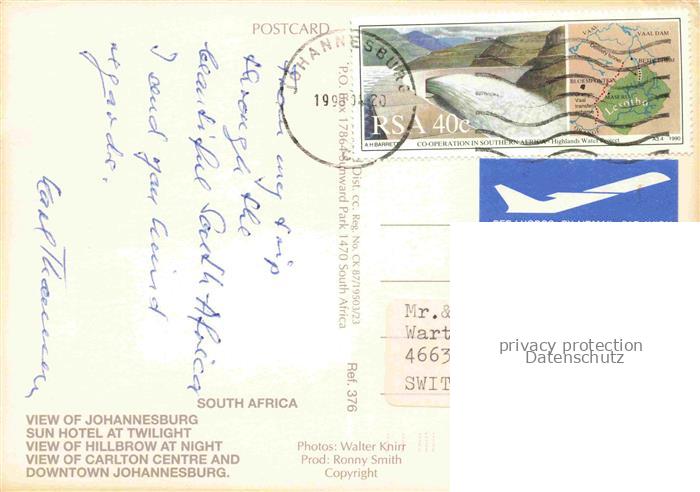 POSTCARD
From my trip
through the
beautiful South Africa
I send you kind
regards.
SOUTH AFRICA
VIEW OF JOHANNESBURG
SUN HOTEL AT TWILIGHT
VIEW OF HILLBROW AT NIGHT
VIEW OF CARLTON CENTRE AND
DOWNTOWN JOHANNESBURG.
Photos: Walter Knirr
Prod: Ronny Smith
Copyright
Dist. cc. Reg. No. CK 87/19503/23
P.O. Box 17864 Sunward Park 1470 South Africa
Ref. 376
JOHANNESBURG
RSA 40c
A H BARRETT
CO-OPERATION IN SOUTHERN AFRICA • Highlands Water Project
1990
VAAL DAM
VAAL
BETHLEHEM
BLOEMFONTEIN
MASERU
Lesotho
Mr.&
Wart
4663
SWIT
privacy protection
Datenschutz